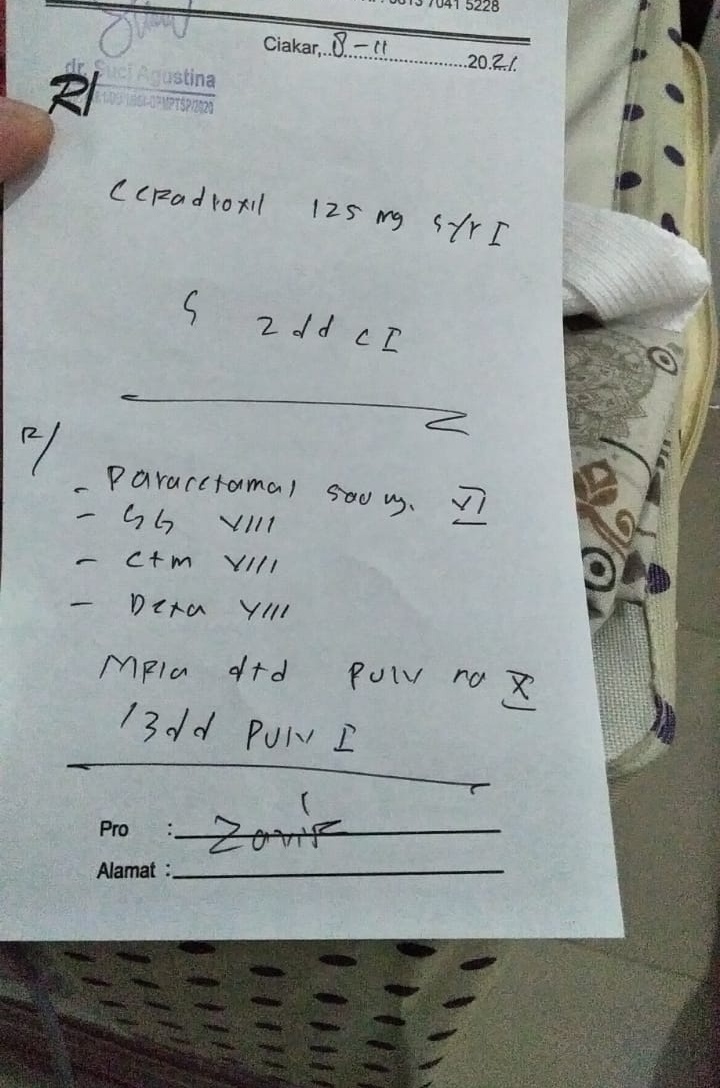 7041 5228
Ciakar, 8-11 2021
dr. Suci Agustina
R/
Cefadroxil 125 mg syr I
S 2dd C I
R/
- Paracetamol 500 mg. VI
- GG VIII
- Ctm VIII
- Dexa VIII
Mfla dtd pulv no X
13dd pulv I
Pro : Zavir
Alamat :